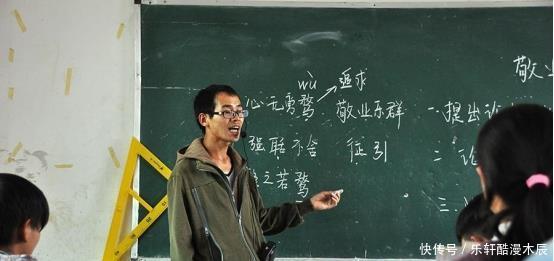 敬业
wù 追求
心无旁骛 敬业乐群 一.提出论
强聒不舍 征引 二 论
之若鹜 三.
快传号/乐轩酷漫木辰